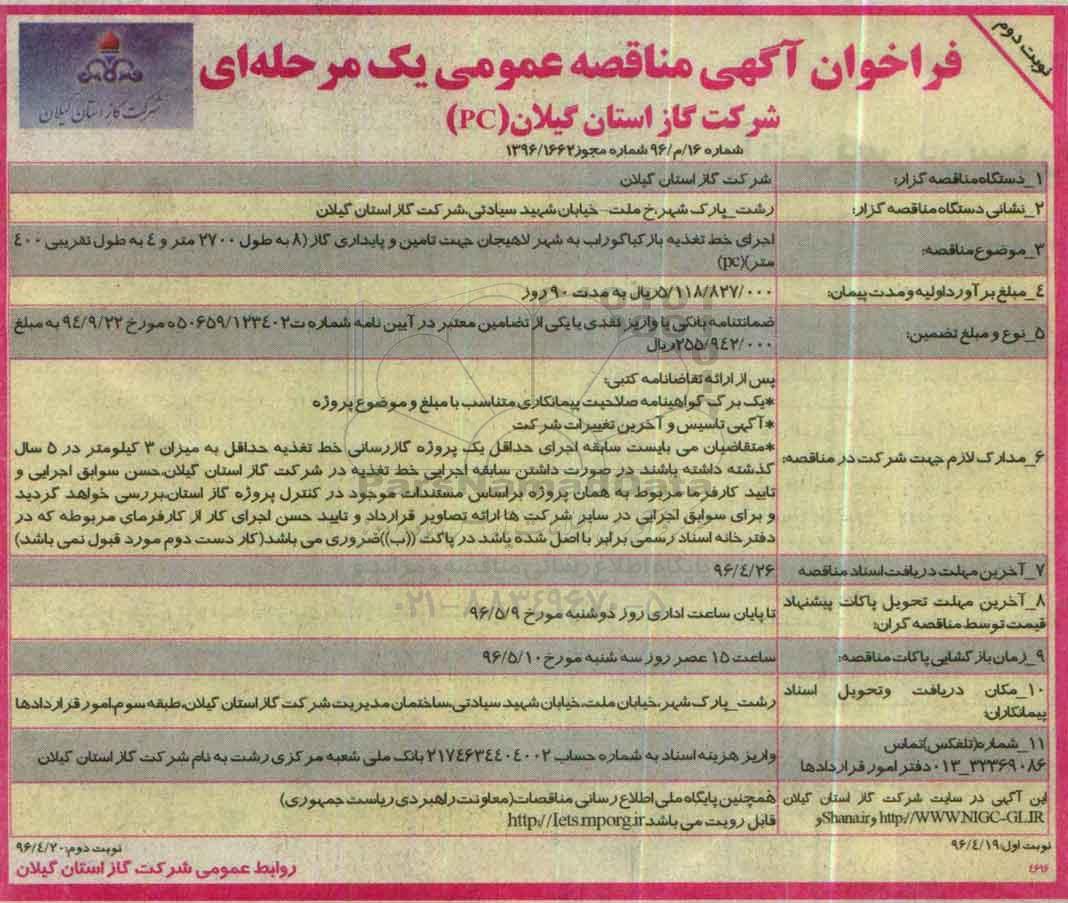 نوبت دوم
فراخوان آگهی مناقصه عمومی یک مرحله‌ای
شرکت گاز استان گیلان(PC)
شماره ۱۶/م/۹۶ شماره مجوز۱۳۹۶/۱۶۶۲
شرکت گاز استان گیلان
۱_دستگاه مناقصه گزار:
شرکت گاز استان گیلان
۲_نشانی دستگاه مناقصه گزار:
رشت_پارک شهر،خ ملت-خیابان شهید سیادتی،شرکت گاز استان گیلان
۳_موضوع مناقصه:
اجرای خط تغذیه بازکیاگوراب به شهر لاهیجان جهت تامین و پایداری گاز (۸ به طول ۲۷۰۰ متر و ٤ به طول تقریبی ٤۰۰
متر)(pc)
٤_مبلغ برآورد اولیه و مدت پیمان:
۵/۱۱۸/۸۲۷/۰۰۰ریال به مدت ۹۰ روز
۵_نوع و مبلغ تضمین:
ضمانتنامه بانکی یا واریز نقدی یا یکی از تضامین معتبر در آیین نامه شماره ت۵۰۶۵۹/۱۲۳٤۰۲ه مورخ ۹٤/۹/۲۲ به مبلغ
۲۵۵/۹٤۲/۰۰۰ریال
۶_مدارک لازم جهت شرکت در مناقصه:
پس از ارائه تقاضانامه کتبی:
*یک برگ گواهینامه صلاحیت پیمانکاری متناسب با مبلغ و موضوع پروژه
*آگهی تاسیس و آخرین تغییرات شرکت
*متقاضیان می بایست سابقه اجرای حداقل یک پروژه گازرسانی خط تغذیه حداقل به میزان ۳ کیلومتر در ۵ سال
گذشته داشته باشند در صورت داشتن سابقه اجرایی خط تغذیه در شرکت گاز استان گیلان،حسن سوابق اجرایی و
تایید کارفرما مربوط به همان پروژه براساس مستندات موجود در کنترل پروژه گاز استان،بررسی خواهد گردید
و برای سوابق اجرایی در سایر شرکت ها ارائه تصاویر قرارداد و تایید حسن اجرای کار از کارفرمای مربوطه که در
دفترخانه اسناد رسمی برابر با اصل شده باشد در پاکت ((ب))ضروری می باشد(کار دست دوم مورد قبول نمی باشد)
۷_آخرین مهلت دریافت اسناد مناقصه
۹۶/٤/۲۶
۸_آخرین مهلت تحویل پاکات پیشنهاد
قیمت توسط مناقصه گران:
تا پایان ساعت اداری روز دوشنبه مورخ ۹۶/۵/۹
۹_زمان بازگشایی پاکات مناقصه:
ساعت ۱۵ عصر روز سه شنبه مورخ۹۶/۵/۱۰
۱۰_مکان دریافت وتحویل اسناد
پیمانکاران:
رشت_پارک شهر،خیابان ملت،خیابان شهید سیادتی،ساختمان مدیریت شرکت گاز استان گیلان،طبقه سوم،امور قراردادها
۱۱_شماره(تلفکس)تماس
۰۱۳_۳۲۳۶۹۰۸۶دفتر امور قراردادها
واریز هزینه اسناد به شماره حساب ۲۱۷٤۶۳٤٤۰٤۰۰۲ بانک ملی شعبه مرکزی رشت به نام شرکت گاز استان گیلان
این آگهی در سایت شرکت گاز استان گیلان
http://WWW.NIGC-GL.IR وShana.irو
همچنین پایگاه ملی اطلاع رسانی مناقصات(معاونت راهبردی ریاست جمهوری)
قابل رویت می باشد http://Iets.mporg.ir
نوبت اول:۹۶/٤/۱۹
نوبت دوم:۹۶/٤/۲۰
روابط عمومی شرکت گاز استان گیلان
ParsNamadData
پایگاه اطلاع رسانی مناقصه و مزایده
۰۲۱-۸۸۳٤۹۶۷۰-۵